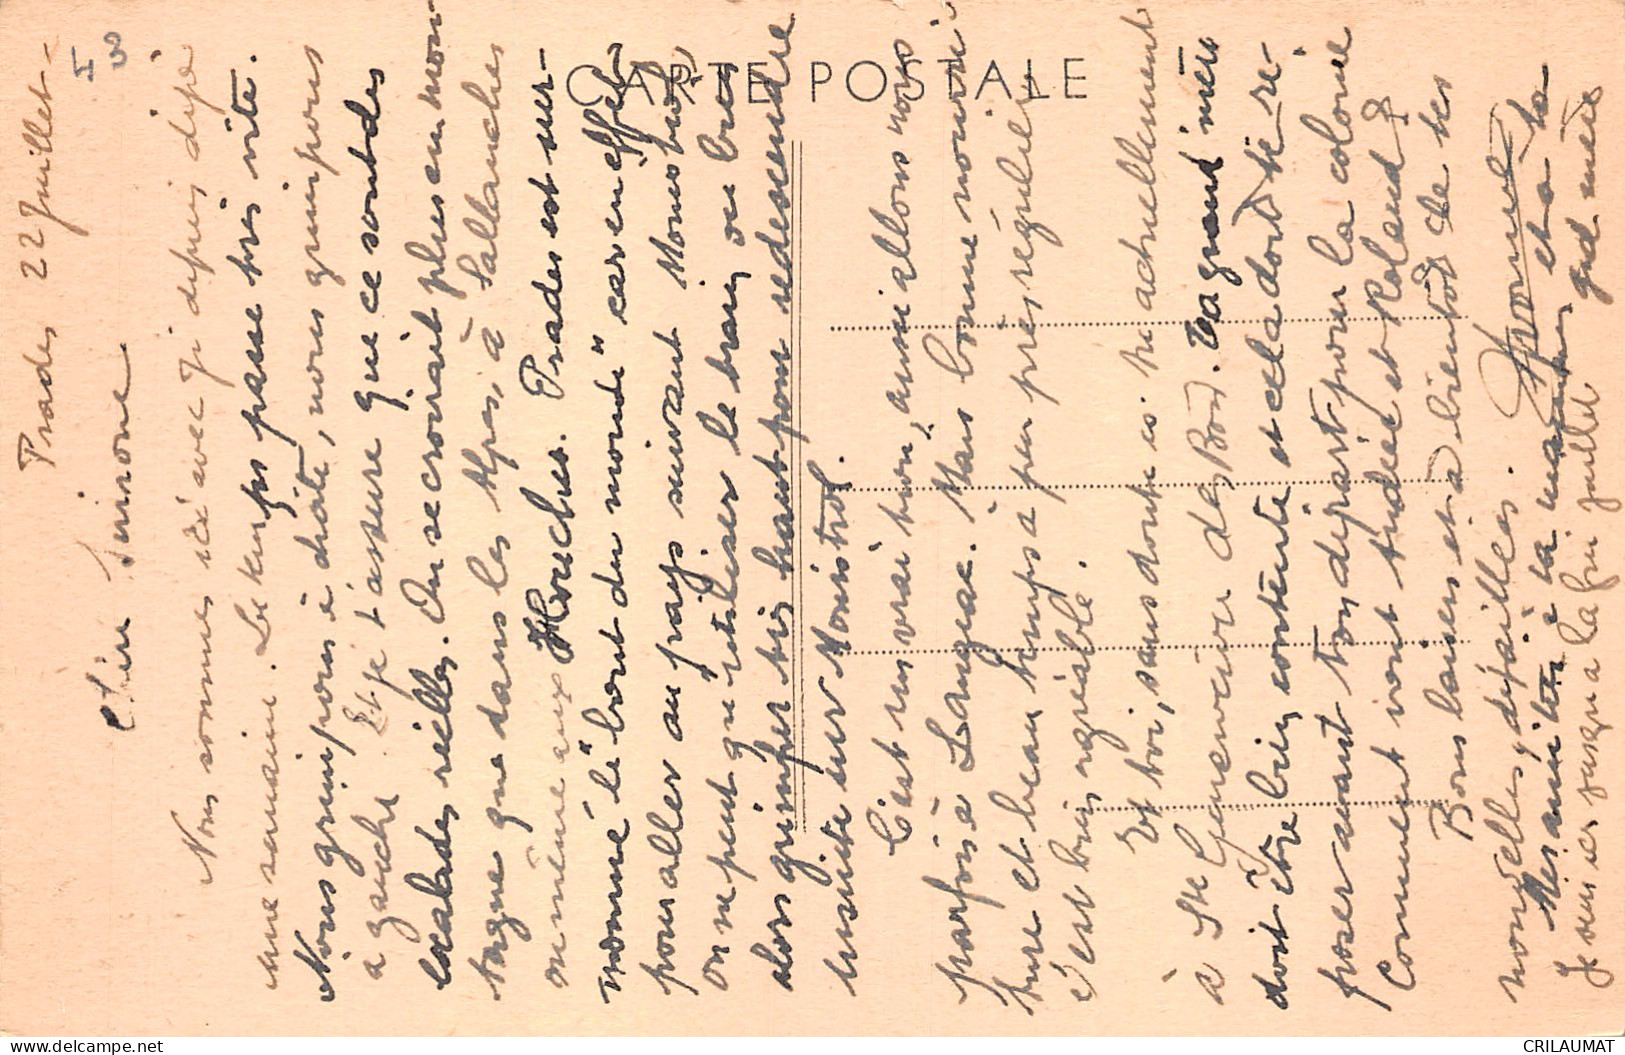 Prades 22 Juillet -
Chère Simone
Nous sommes ici avec Ji depuis déjà
une semaine. Le temps passe très vite.
Nous grimpons à droite, nous grimpons
à gauche. Et je t'assure que ce sont des
escalades réelles. On se croirait plus en mon-
tagne que dans les Alpes, à Sallanches
ou même aux Houches. Prades est sur-
nommé le "bout du monde" car en effet
pour aller au pays suivant Monistrol
on ne peut qu'utiliser le train ou bien
alors grimper très haut pour redescendre
ensuite sur Monistrol.
C'est un vrai trou, aussi allons nous
parfois à Langeac. Mais bonne nourri-
ture et beau temps à peu près régulier
c'est bien agréable.
Et toi, sans doute es-tu actuellement
à Ste Geneviève des Bois. Ta grand'mère
doit être bien contente et cela doit te re-
poser avant ton départ pour la colonie
Comment vont Andrée et Roland ?
Bons baisers et à bientôt de tes
nouvelles, détaillées.
Mes amitiés à ta maman et à ta
grd mère
Je suis ici jusqu'à la fin juillet
CARTE POSTALE
CRILAUMAT